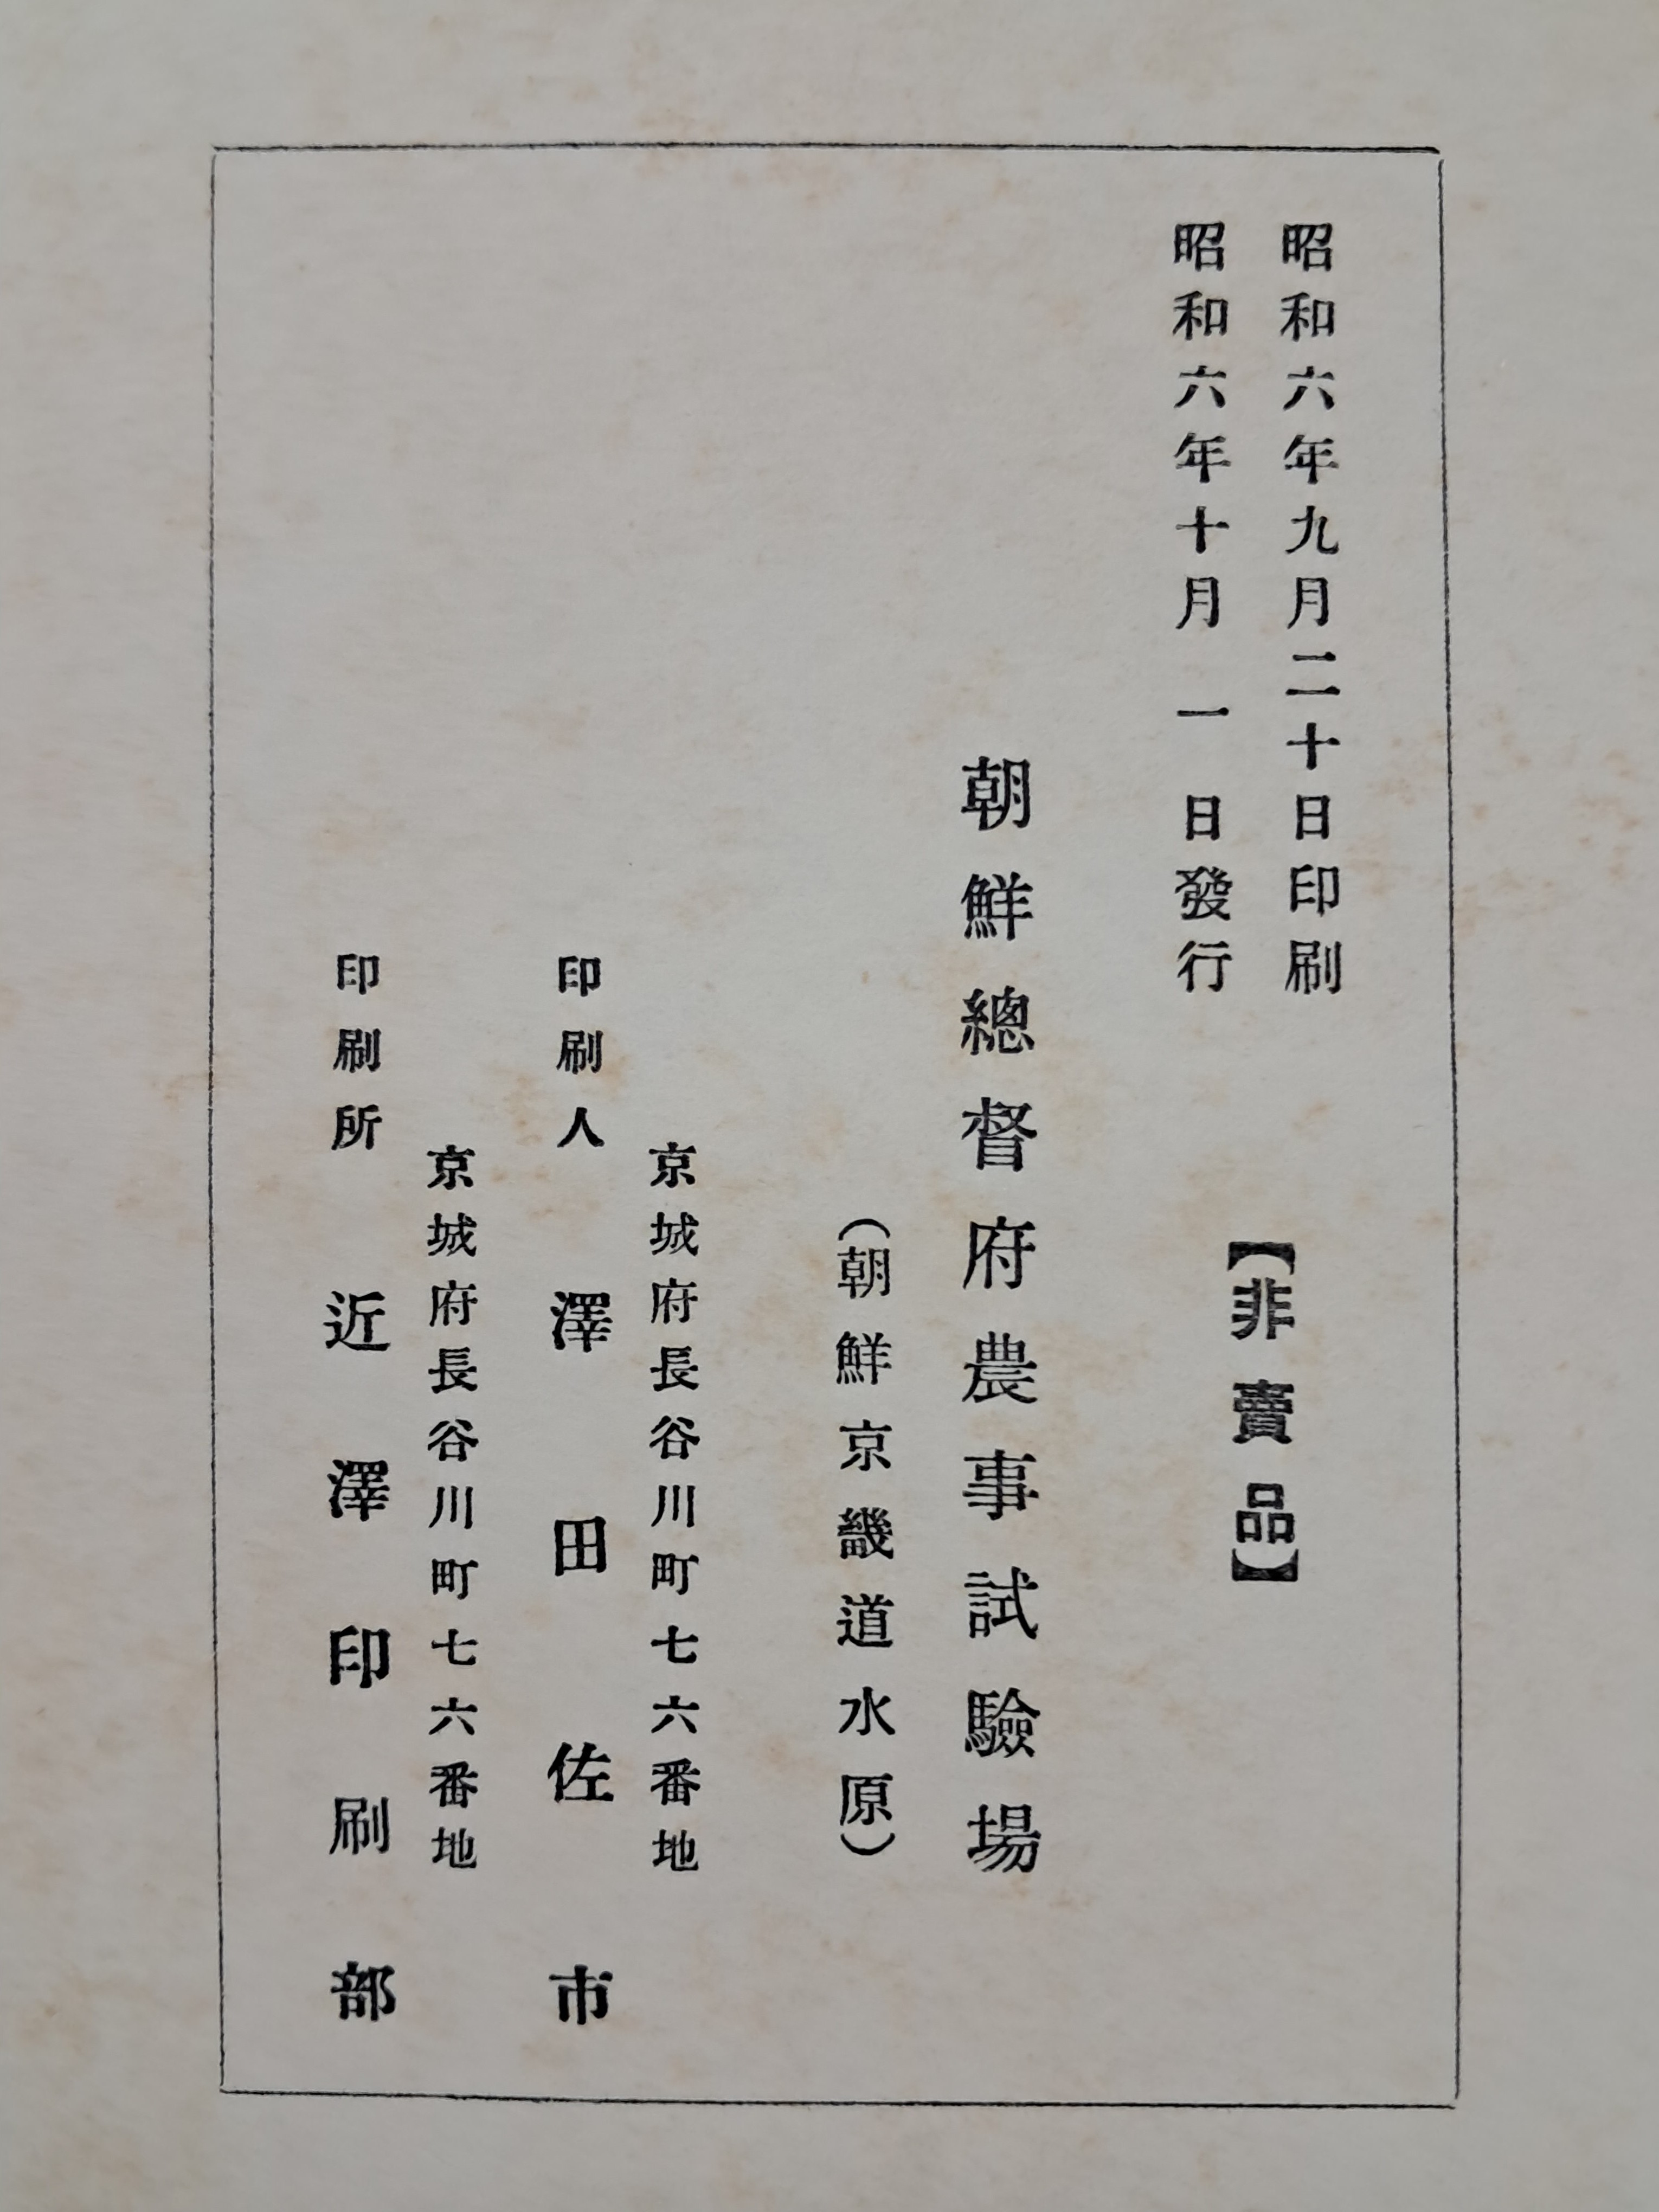 昭和六年九月二十日印刷
昭和六年十月一日發行
【非賣品】
朝鮮總督府農事試驗場
(朝鮮京畿道水原)
京城府長谷川町七六番地
印刷人 澤田佐市
京城府長谷川町七六番地
印刷所 近澤印刷部